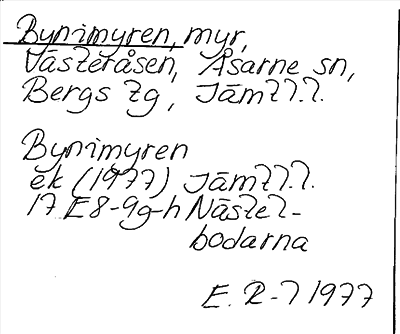 Bynimyren, myr,
Västeråsen, Åsarne sn,
Bergs tg, Jämtl.
Bynimyren
ek (1977) Jämtl.
17 E 8-9 g-h Nästel-
bodarna
E. R-l 1977